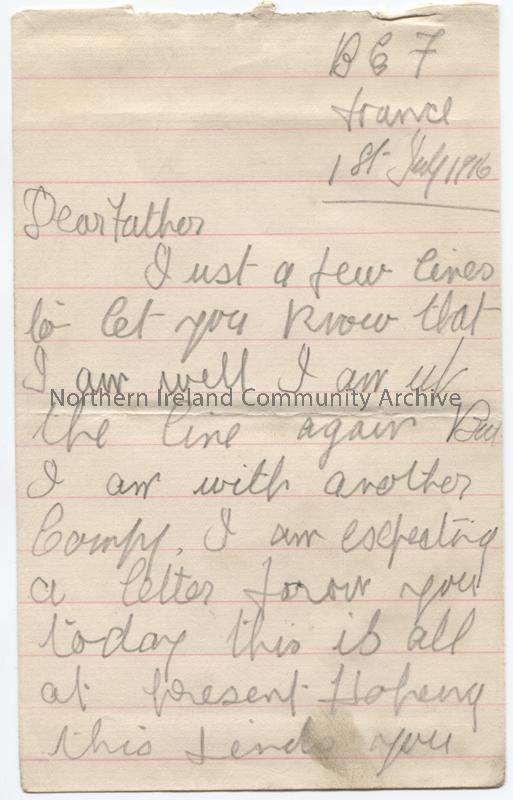 B E F
France
1st July 1916
Dear Father
Just a few lines
to let you know that
I am well I am up
Northern Ireland Community Archive
the line again But
I am with another
Compy. I am expecting
a letter forom you
today this is all
at present Hopeing
this finds you